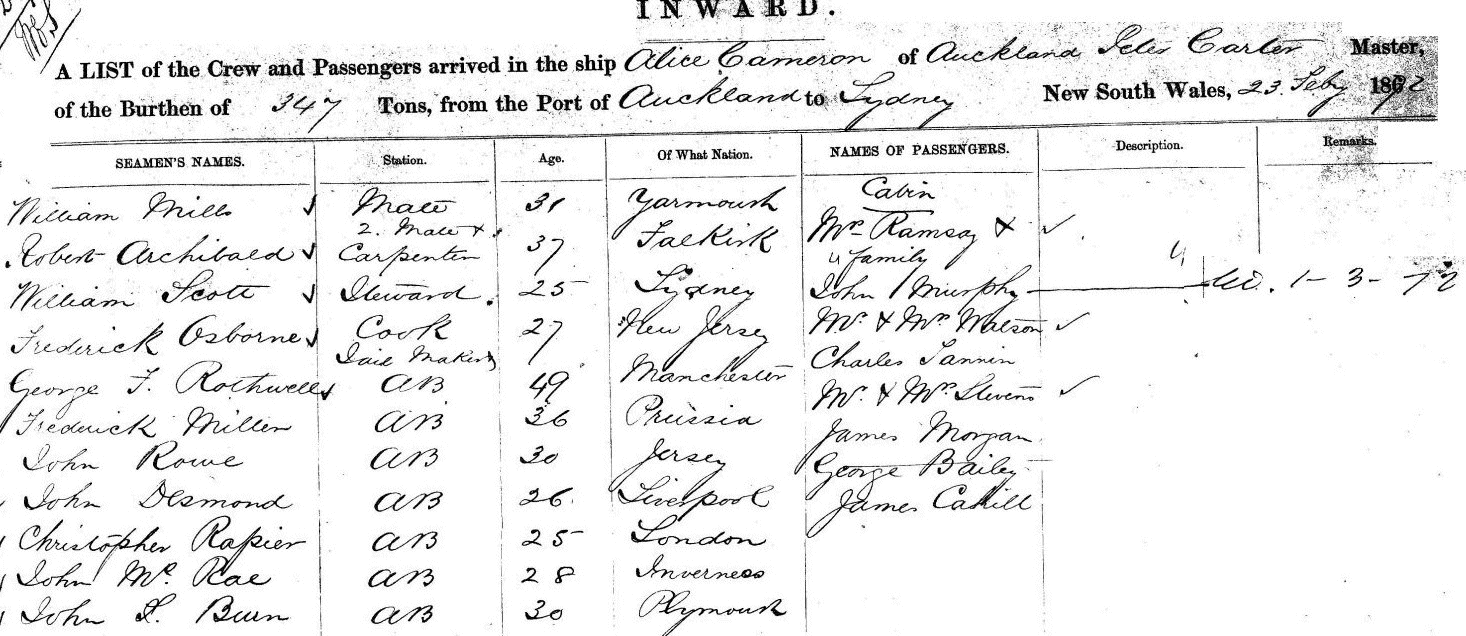 INWARD.
A LIST of the Crew and Passengers arrived in the ship Alice Cameron of Auckland Peter Carter Master,
of the Burthen of 347 Tons, from the Port of Auckland to Sydney New South Wales, 23 Feby 1872
SEAMEN'S NAMES. Station. Age. Of What Nation. NAMES OF PASSENGERS. Description. Remarks.
Cabin
William Mills Mate 31 Yarmouth Mrs Ramsay &
2. Mate &
Robert Archibald Carpenter 37 Falkirk 4 family
William Scott Steward. 25 Sydney John Murphy 4 1-3-72
Frederick Osborne Cook 27 New Jersey Mr. & Mrs Watson
Sail Maker Charles
George F. Rothwell AB 49 Manchester Mr. & Mrs. Stevens
Frederick Miller AB 36 Prussia James Morgan
John Rowe AB 30 Jersey George Bailey
John Desmond AB 26. Liverpool James Cahill
Christopher Rapier AB 25 London
John Mc Rae AB 28 Inverness
John Burn AB 30 Plymouth